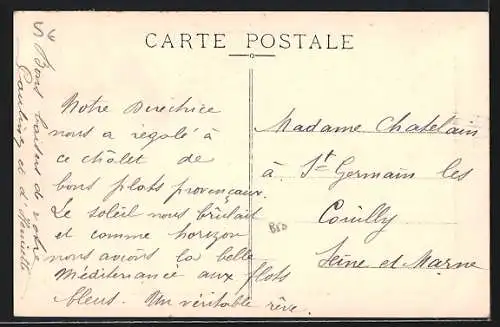 CARTE POSTALE
Notre Directrice
nous a régalé à
ce châlet de
bons plats provençaux.
Le soleil nous brûlait
et comme horizon
nous avions la belle
Méditerranée aux flots
bleus. Un véritable rêve.
Bons baisers de votre
et d'Henriette
Madame Chatelain
à St Germain les
Couilly
Seine et Marne